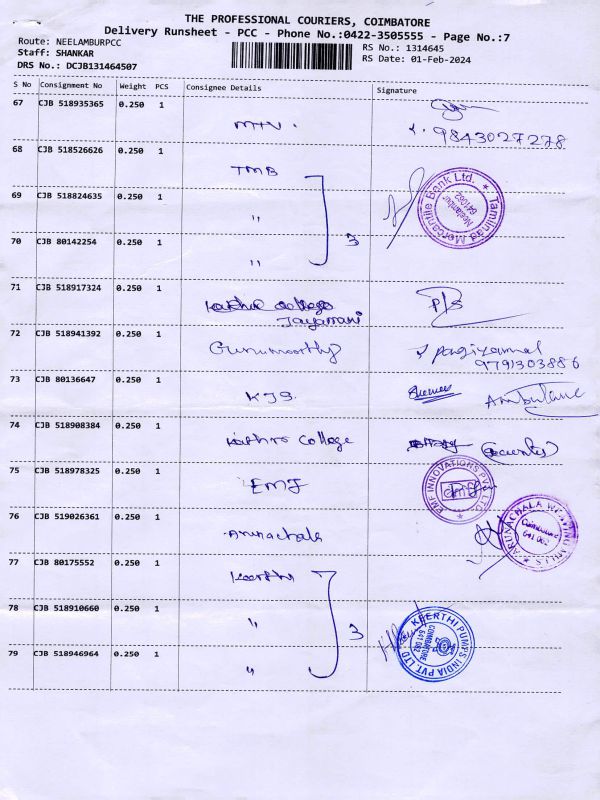 THE PROFESSIONAL COURIERS, COIMBATORE
Delivery Runsheet - PCC - Phone No.:0422-3505555 - Page No.:7
Route: NEELAMBURPCC
RS No.: 1314645
Staff: SHANKAR
RS Date: 01-Feb-2024
DRS No.: DCJB131464507
S No Consignment No Weight PCS Consignee Details Signature
67 CJB 518935365 0.250 1
9843027278
68 CJB 518526626 0.250 1
TMB
Tamilnad Mercantile Bank Ltd.
Neelambur
641062
69 CJB 518824635 0.250 1
"
70 CJB 80142254 0.250 1
3
"
71 CJB 518917324 0.250 1
college
Jayamani
72 CJB 518941392 0.250 1
Gurumoorthy
9791303886
73 CJB 80136647 0.250 1
KJS.
Ambulance
74 CJB 518908384 0.250 1
College
75 CJB 518978325 0.250 1
EMF
EMF INNOVATIONS PVT LTD
76 CJB 519026361 0.250 1
Arunachala
Coimbatore
641 062
77 CJB 80175552 0.250 1
Keerthi
78 CJB 518910660 0.250 1
"
3
KEERTHI PUMPS INDIA PVT. LTD
COIMBATORE
641 062
79 CJB 518946964 0.250 1
"